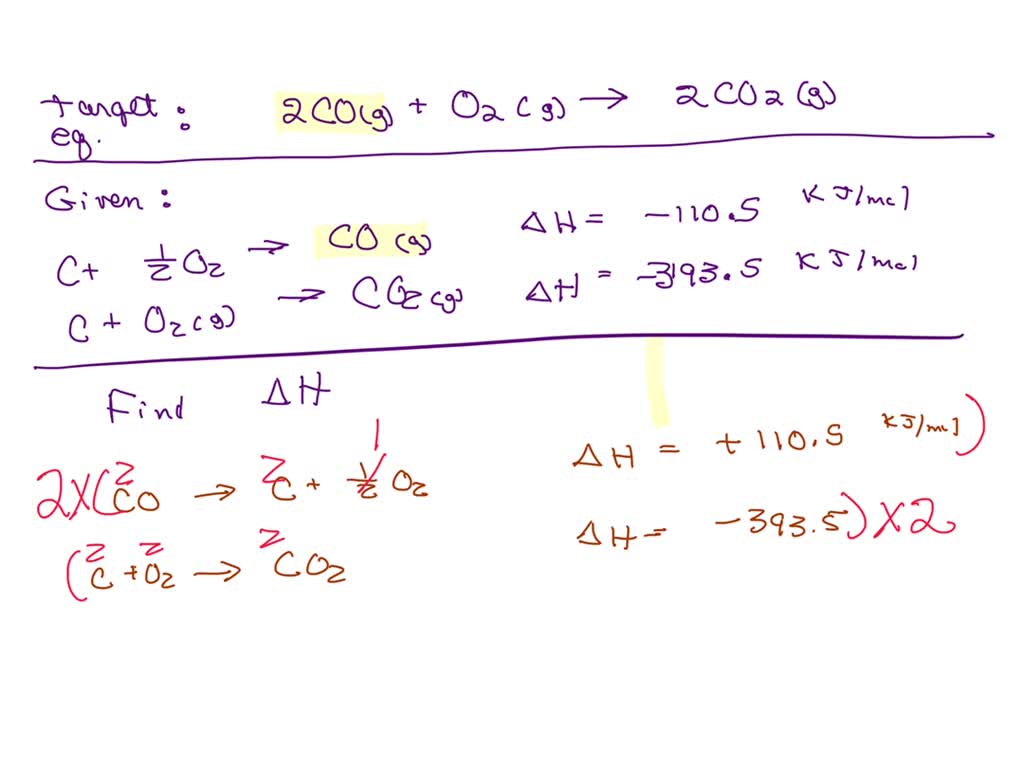 target : 2CO(g) + O2(g) → 2CO2(g)
eq.
Given :
C + 1/2 O2 → CO(g) ΔH = -110.5 KJ/mol
C + O2(g) → CO2(g) ΔH = -393.5 KJ/mol
Find ΔH
1
2×(2CO → 2C + 1/2 O2 ΔH = +110.5 KJ/mol)
(2C + 2O2 → 2CO2 ΔH = -393.5)×2